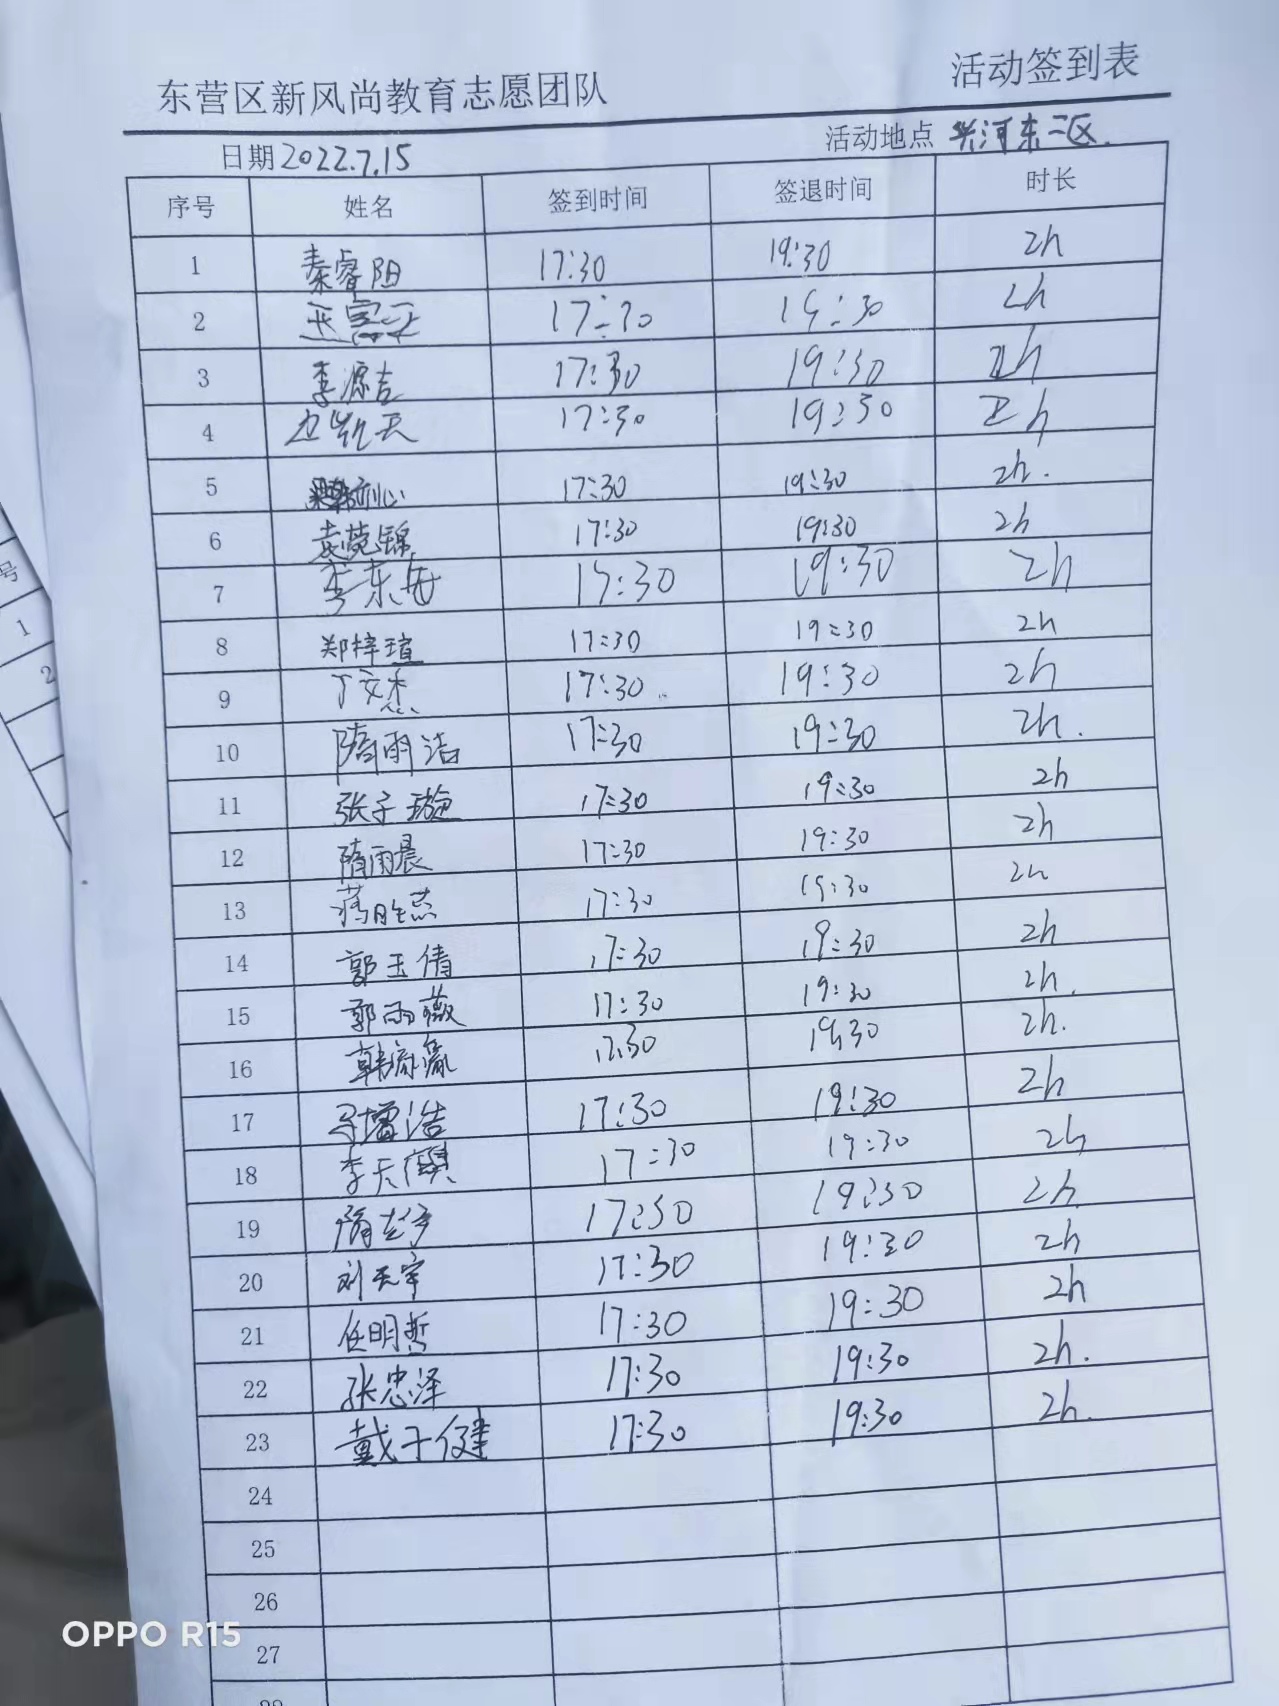 东营区新风尚教育志愿团队 活动签到表
日期2022.7.15 活动地点 东二区.
序号 姓名 签到时间 签退时间 时长
1 秦睿阳 17:30 19:30 2h
2 19:30 2h
3 李源吉 17:30 19:30 2h
4 17:30 19:30 2h
5 17:30 19:30 2h.
6 袁菀锦 17:30 19:30 2h
7 李东海 19:30 2h
8 郑梓瑄 17:30 19:30 2h
9 丁文杰 17:30 19:30 2h
10 隋雨洁 17:30 19:30 2h.
11 张子璇 17:30 19:30 2h
12 隋雨晨 17:30 19:30 2h
13 17:30 19:30 2h
14 郭玉倩 17:30 19:30 2h
15 郭雨薇 17:30 19:30 2h.
16 17:30 19:30 2h.
17 17:30 19:30 2h
18 李天麒 17:30 19:30 2h
19 17:30 19:30 2h
20 刘天宇 17:30 19:30 2h
21 任明哲 17:30 19:30 2h
22 张忠泽 17:30 19:30 2h.
23 戴子健 17:30 19:30 2h.
24
25
26
27
28
号
1
2
OPPO R15